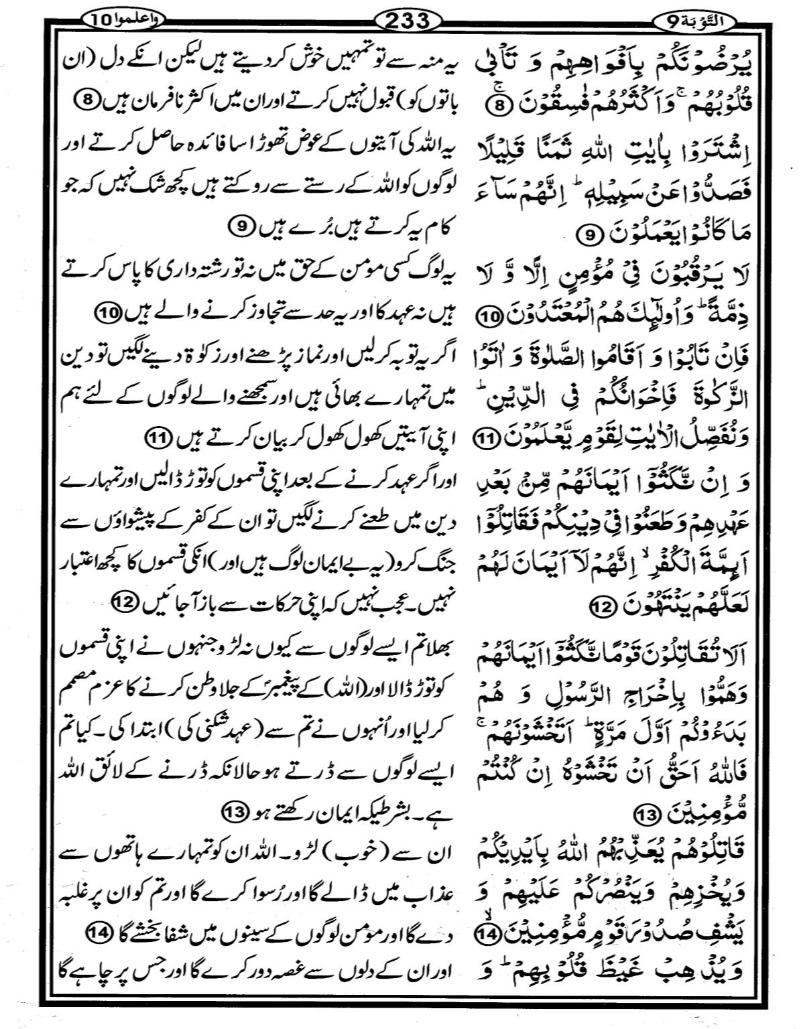 التَّوْبَة 9
233
واعلموا 10
يُرْضُوْنَكُمْ بِاَفْوَاهِهِمْ وَ تَاْبٰى
قُلُوْبُهُمْ ۚ وَاَكْثَرُهُمْ فٰسِقُوْنَ ۚ 8
اِشْتَرَوْا بِاٰيٰتِ اللّٰهِ ثَمَنًا قَلِيْلًا
فَصَدُّوْا عَنْ سَبِيْلِهٖ ؕ اِنَّهُمْ سَآءَ
مَا كَانُوْا يَعْمَلُوْنَ 9
لَا يَرْقُبُوْنَ فِيْ مُؤْمِنٍ اِلًّا وَّ لَا
ذِمَّةً ؕ وَاُولٰٓئِكَ هُمُ الْمُعْتَدُوْنَ 10
فَاِنْ تَابُوْا وَ اَقَامُوا الصَّلٰوةَ وَ اٰتَوُا
الزَّكٰوةَ فَاِخْوَانُكُمْ فِي الدِّيْنِ ؕ
وَنُفَصِّلُ الْاٰيٰتِ لِقَوْمٍ يَّعْلَمُوْنَ 11
وَ اِنْ نَّكَثُوْٓا اَيْمَانَهُمْ مِّنْۢ بَعْدِ
عَهْدِهِمْ وَطَعَنُوْا فِيْ دِيْنِكُمْ فَقَاتِلُوْٓا
اَىِٕمَّةَ الْكُفْرِ ۙ اِنَّهُمْ لَآ اَيْمَانَ لَهُمْ
لَعَلَّهُمْ يَنْتَهُوْنَ 12
اَلَا تُقَاتِلُوْنَ قَوْمًا نَّكَثُوْٓا اَيْمَانَهُمْ
وَهَمُّوْا بِاِخْرَاجِ الرَّسُوْلِ وَ هُمْ
بَدَءُوْكُمْ اَوَّلَ مَرَّةٍ ؕ اَتَخْشَوْنَهُمْ ۚ
فَاللّٰهُ اَحَقُّ اَنْ تَخْشَوْهُ اِنْ كُنْتُمْ
مُّؤْمِنِيْنَ 13
قَاتِلُوْهُمْ يُعَذِّبْهُمُ اللّٰهُ بِاَيْدِيْكُمْ
وَيُخْزِهِمْ وَيَنْصُرْكُمْ عَلَيْهِمْ وَ
يَشْفِ صُدُوْرَ قَوْمٍ مُّؤْمِنِيْنَ ۙ 14
وَيُذْهِبْ غَيْظَ قُلُوْبِهِمْ ؕ وَ
یہ منہ سے تو تمہیں خوش کر دیتے ہیں لیکن انکے دل (ان
باتوں کو) قبول نہیں کرتے اور ان میں اکثر نافرمان ہیں 8
یہ اللہ کی آیتوں کے عوض تھوڑا سا فائدہ حاصل کرتے اور
لوگوں کو اللہ کے رستے سے روکتے ہیں کچھ شک نہیں کہ جو
کام یہ کرتے ہیں بُرے ہیں 9
یہ لوگ کسی مومن کے حق میں نہ تو رشتہ داری کا پاس کرتے
ہیں نہ عہد کا اور یہ حد سے تجاوز کرنے والے ہیں 10
اگر یہ توبہ کر لیں اور نماز پڑھنے اور زکوٰۃ دینے لگیں تو دین
میں تمہارے بھائی ہیں اور سمجھنے والے لوگوں کے لئے ہم
اپنی آیتیں کھول کھول کر بیان کرتے ہیں 11
اور اگر عہد کرنے کے بعد اپنی قسموں کو توڑ ڈالیں اور تمہارے
دین میں طعنے کرنے لگیں تو ان کے کفر کے پیشواؤں سے
جنگ کرو (یہ بے ایمان لوگ ہیں اور) انکی قسموں کا کچھ اعتبار
نہیں۔ عجب نہیں کہ اپنی حرکات سے باز آ جائیں 12
بھلا تم ایسے لوگوں سے کیوں نہ لڑو جنہوں نے اپنی قسموں
کو توڑ ڈالا اور (اللہ) کے پیغمبرؐ کے جلا وطن کرنے کا عزم مصمم
کر لیا اور اُنہوں نے تم سے (عہد شکنی کی) ابتدا کی۔ کیا تم
ایسے لوگوں سے ڈرتے ہو حالانکہ ڈرنے کے لائق اللہ
ہے۔ بشرطیکہ ایمان رکھتے ہو 13
ان سے (خوب) لڑو۔ اللہ ان کو تمہارے ہاتھوں سے
عذاب میں ڈالے گا اور رُسوا کرے گا اور تم کو ان پر غلبہ
دے گا اور مومن لوگوں کے سینوں میں شفا بخشے گا 14
اور ان کے دلوں سے غصہ دور کرے گا اور جس پر چاہے گا